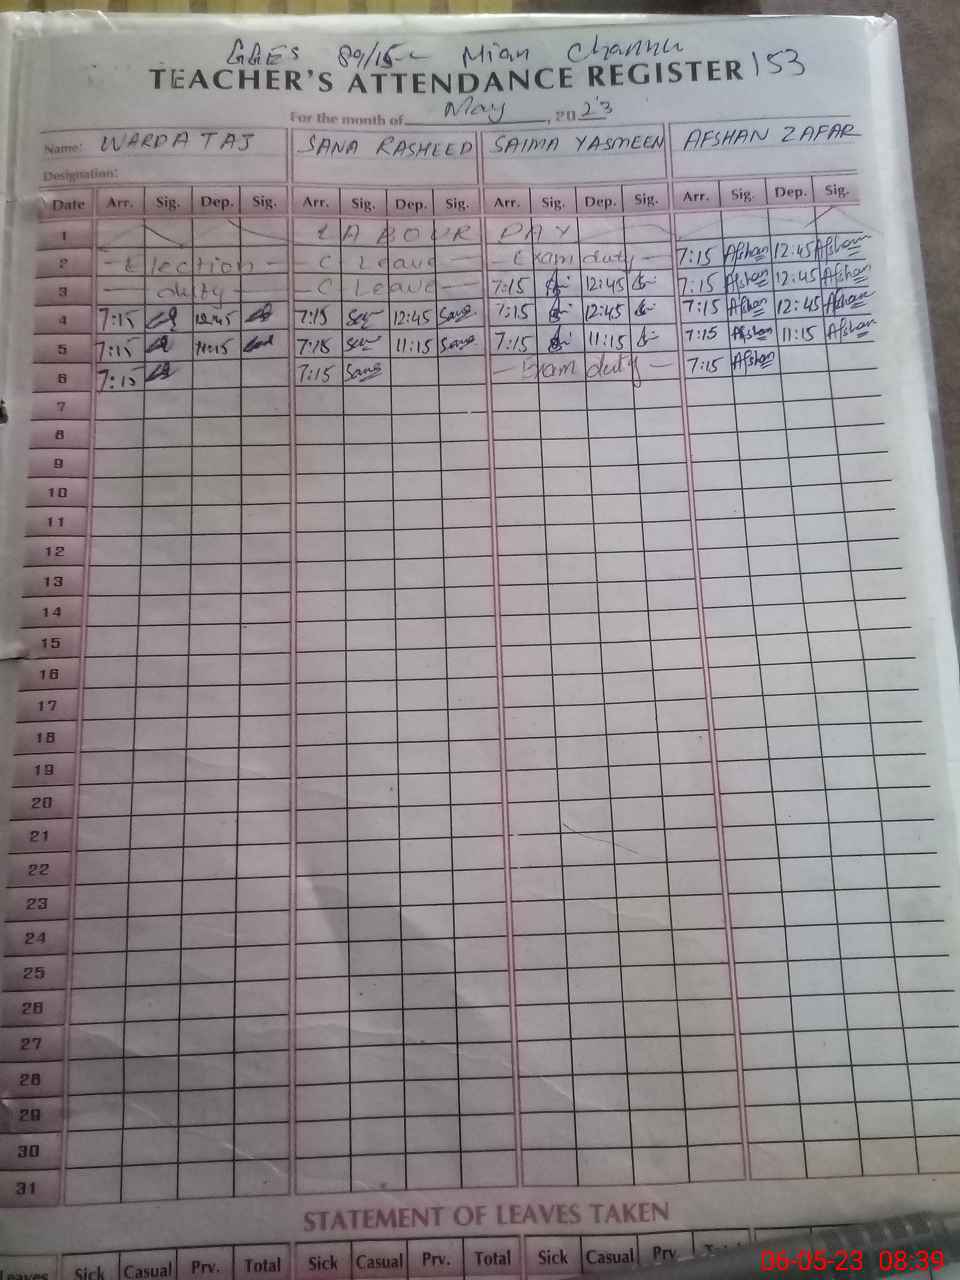 GGES 89/15-L Mian Channu
TEACHER'S ATTENDANCE REGISTER 153
For the month of May, 2023
Name: WARDA TAJ SANA RASHEED SAIMA YASMEEN AFSHAN ZAFAR
Designation:
Date Arr. Sig. Dep. Sig. Arr. Sig. Dep. Sig. Arr. Sig. Dep. Sig. Arr. Sig. Dep. Sig.
1 LABOUR DAY
2 - Election - - C Leave - - Exam duty - 7:15 Afshan 12:45 Afshan
3 - duty - - C Leave - 7:15 12:45 7:15 Afshan 12:45 Afshan
4 7:15 12:45 7:15 12:45 Sana 7:15 12:45 7:15 Afshan 12:45 Afshan
5 7:15 11:15 7:15 11:15 Sana 7:15 11:15 7:15 Afshan 11:15 Afshan
6 7:15 7:15 Sana - Exam duty - 7:15 Afshan
7
8
9
10
11
12
13
14
15
16
17
18
19
20
21
22
23
24
25
26
27
28
29
30
31
STATEMENT OF LEAVES TAKEN
Leaves Sick Casual Prv. Total Sick Casual Prv. Total Sick Casual Prv.
06-05-23 08:39